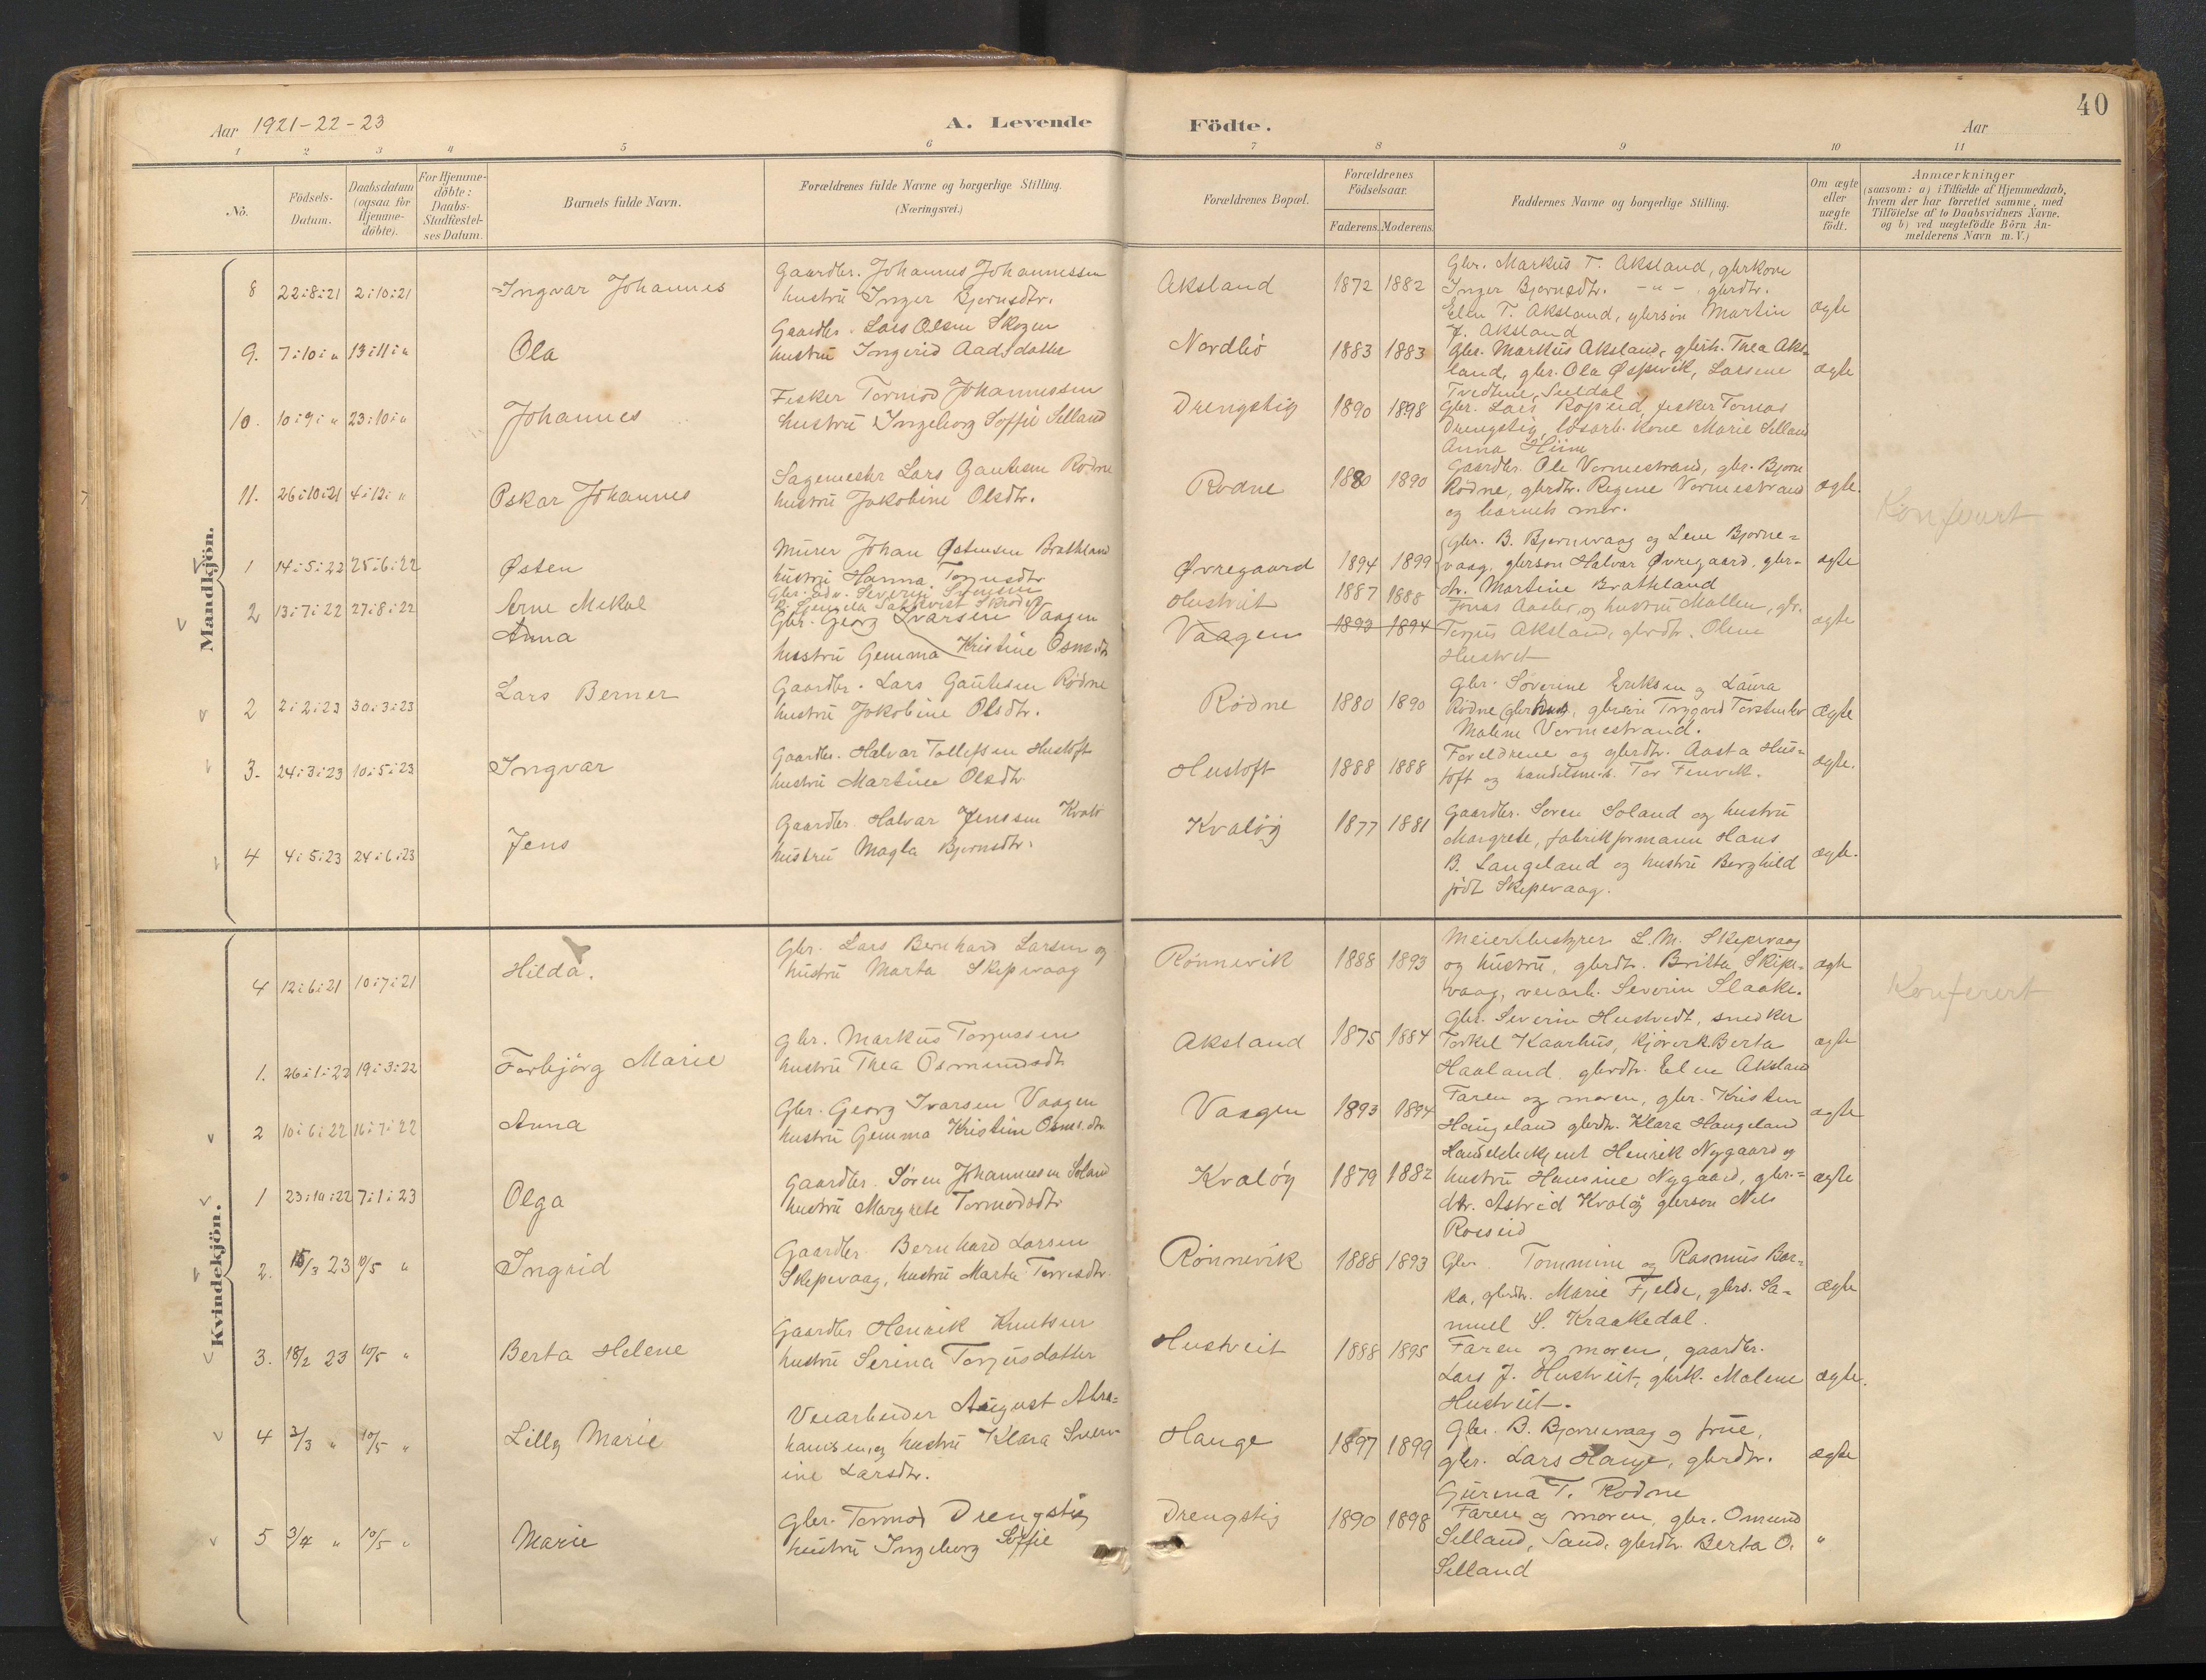 40
Aar 1921-22-23
A. Levende
Födte.
Aar
1 2 3 4 5 6 7 8 9 10 11
No.
Födsels-
Datum.
Daabsdatum
(ogsaa for
Hjemme-
döbte).
For Hjemme-
döbte:
Daabs-
Stadfæstel-
ses Datum.
Barnets fulde Navn.
Forældrenes fulde Navne og borgerlige Stilling.
(Næringsvei.)
Forældrenes Bopæl.
Forældrenes
Födselsaar.
Faderens. Moderens.
Faddernes Navne og borgerlige Stilling.
Om ægte
eller
uægte
födt.
Anmærkninger
(saasom: a) i Tilfælde af Hjemmedaab,
hvem der har forrettet samme, med
Tilföielse af to Daabsvidners Navne.
og b) ved uægtefödte Börn An-
melderens Navn m.V.)
Mandkjön.
8 22:8:21 2:10:21 Ingvar Johannes
Gaardbr. Johannes Johannessen
hustru Inger Bjørnsdtr.
Aksland 1872 1882
Gbr. Markus T. Aksland, gbrkone
Inger Bjørnsdtr. -"- gbrdtr.
Elen T. Aksland, gbrsøn Martin
J. Aksland
ægte
9. 7:10:" 13:11:" Ola
Gaardbr. Lars Olsen Skogen
hustru Ingerid Aadsdatter
Nordbø 1883 1883
Gbr. Markus Aksland, gbrh. Thea Aks-
land, gbr. Ola Øspevik, Larsine
Tvedtene, Suldal
ægte
10. 10:9:" 23:10:" Johannes
Fisker Tormod Johannessen
hustru Ingeborg Soffie Selland
Drengstig 1890 1898
Gbr. Lars Ropeid, fisker Tomas
Drengstig, løsarb. kone Marie Selland
Anna Hiim
11. 26:10:21 4:12:" Oskar Johannes
Sagmester Lars Gautesen Rødne
hustru Jakobine Olsdtr.
Rødne 1880 1890
Gaardbr. Ole Vormestrand, gbr. Bjørn
Rødne, gbrdtr. Regine Vormestrand
og barnets mor.
ægte.
Konferert
1 14:5:22 25:6:22 Østen
Murer Johan Østensen Bratland
hustru Hanna Torjusdtr
Øvregaard 1894 1899
Gbr. B. Bjørnevaag og Lene Bjørne-
vaag, gbrson Halvar Øvregaard, gbr-
dtr. Martine Brathland
ægte
2 13:7:22 27:8:22 Arne Mikal
Hustveit 1887 1888
Jonas Aasbø, og hustru Mallen, gbr.
Torjus Aksland, gbrdtr. Olene
Hustvet
ægte
Anna
Gbr. Georg Ivarsen Vaagen
hustru Gemma Kristine Osm.dtr
Vaagen 1893 1894
2 2:2:23 30:3:23 Lars Berner
Gaardbr. Lars Gautesen Rødne
hustru Jakobine Olsdtr.
Rødne 1880 1890
Gbr. Søverine Eriksen og Laura
Rødne gbrhus, gbrsøn Trygve Torstenbø
Malene Vormestrand.
ægte
3. 24:3:23 10:5:23 Ingvar
Gaardbr. Halvar Tollefsen Hustoft
hustru Martine Olsdtr
Hustoft 1888 1888
Foreldrene og gbrdtr. Aasta Hus-
toft og handelsm.b. Tor Finvik.
ægte.
4 4:5:23 24:6:23 Jens
Gaardbr. Halvar Jenssen Kvalø
hustru Magla Bjørnsdtr.
Kvaløy 1877 1881
Gaardbr. Søren Soland og hustru
Margrete, fabrikformann Hans
B. Langeland og hustru Borghild
født Skipevaag.
ægte.
Kvindekjön.
4 12:6:21 10:7:21 Hilda.
Gbr. Lars Bernhard Larsen og
hustru Marta Skipevaag
Rønnevik 1888 1893
Meieribestyrer L.M. Skipevaag
og hustru, gbrdtr. Britha Skipe-
vaag, veiarb. Severin Slaake.
ægte
Konferert
1. 26:1:22 19:3:22 Torbjørg Marie
Gbr. Markus Torjussen
hustru Thea Osmundsdtr
Aksland 1875 1884
Gbr. Severin Hustvedt, snedker
Torkel Kaarhus, Berta
Haaland, gbrdtr. Eline Aksland
ægte
2 10:6:22 16:7:22 Anna
Gbr. Georg Ivarsen Vaagen
hustru Gemma Kristine Osm.dtr.
Vaagen 1893 1894
Faren og moren, gbr. Kristen
Haugeland gbrdtr. Klara Haugeland
ægte
1 23:10:22 7:1:23 Olga
Gaardbr. Søren Johannesen Soland
hustru Margrete Tormodsdtr
Kvaløy 1879 1882
Handelsbetjent Henrik Nygaard og
hustru Hansine Nygaard, gbr.-
dtr. Astrid Kvaløy gbrson Nils
Roeseid
ægte
2. 15/3 23 10/5 " Ingrid
Gaardbr. Bernhard Larsen
Skipevaag, hustru Marta Torresdtr.
Rønnevik 1888 1893
Gbr. Tommine og Rasmus Bar-
ka, gbrdtr. Marie Fjelde, gbrs. Sa-
muel S. Kraakedal.
ægte
3. 18/2 23 10/5 " Berta Helene
Gaardbr Henrik Knutsen
hustru Serina Torjusdatter
Hustveit 1888 1895
Faren og moren, gaardbr.
Lars J. Hustveit, gbrk. Malene
Hustveit.
ægte.
4 3/3 " 10/5 " Lilly Marie
Veiarbeider August Abra-
hamsen og hustru Klara Sever-
ine Larsdtr.
Hauge 1897 1899
Gbr. B. Bjørnevaag og frue,
gbr. Lars Hauge, gbrdtr.
Gurina T. Rødne
ægte
5 3/4 " 10/5 " Marie
Gbr. Tormod Drengstig
hustru Ingeborg Soffie
Drengstig 1890 1898
Faren og moren, gbr. Omund
Selland, Sand, gbrdtr. Berta O.
Selland
"